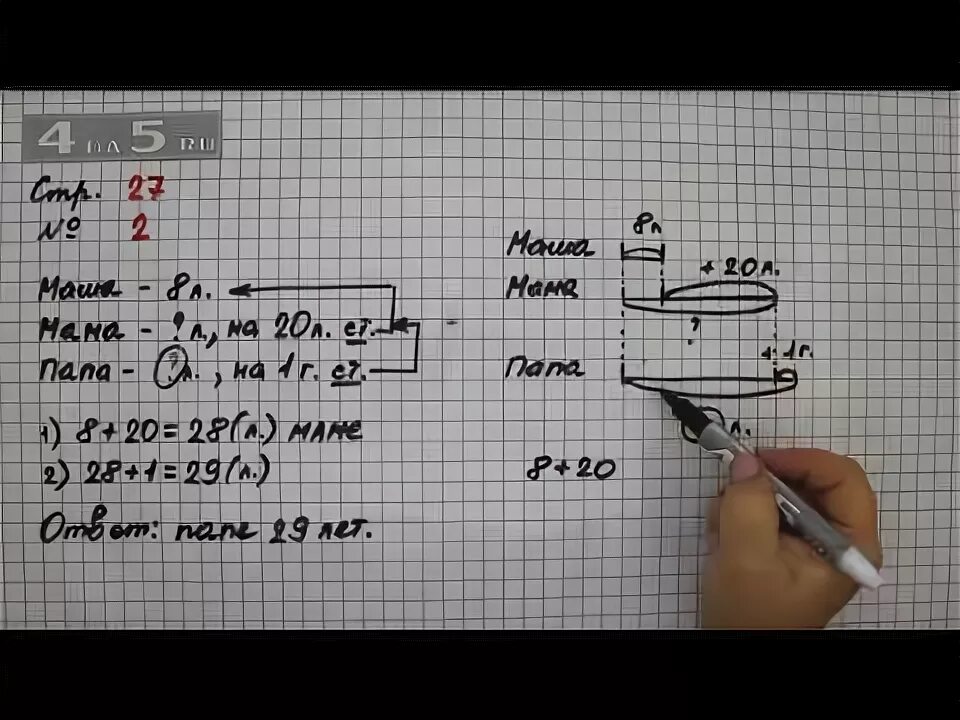 4 на 5 RU
Стр. 27
№ 2
Маша - 8 л.
Мама - ? л., на 20 л. ст.
Папа - ? л., на 1 г. ст.
1) 8 + 20 = 28 (л.) маме
2) 28 + 1 = 29 (л.)
Ответ: папе 29 лет.
8 л
Маша
+ 20 л.
Мама
?
+ 1 г.
Папа
л.
8 + 20